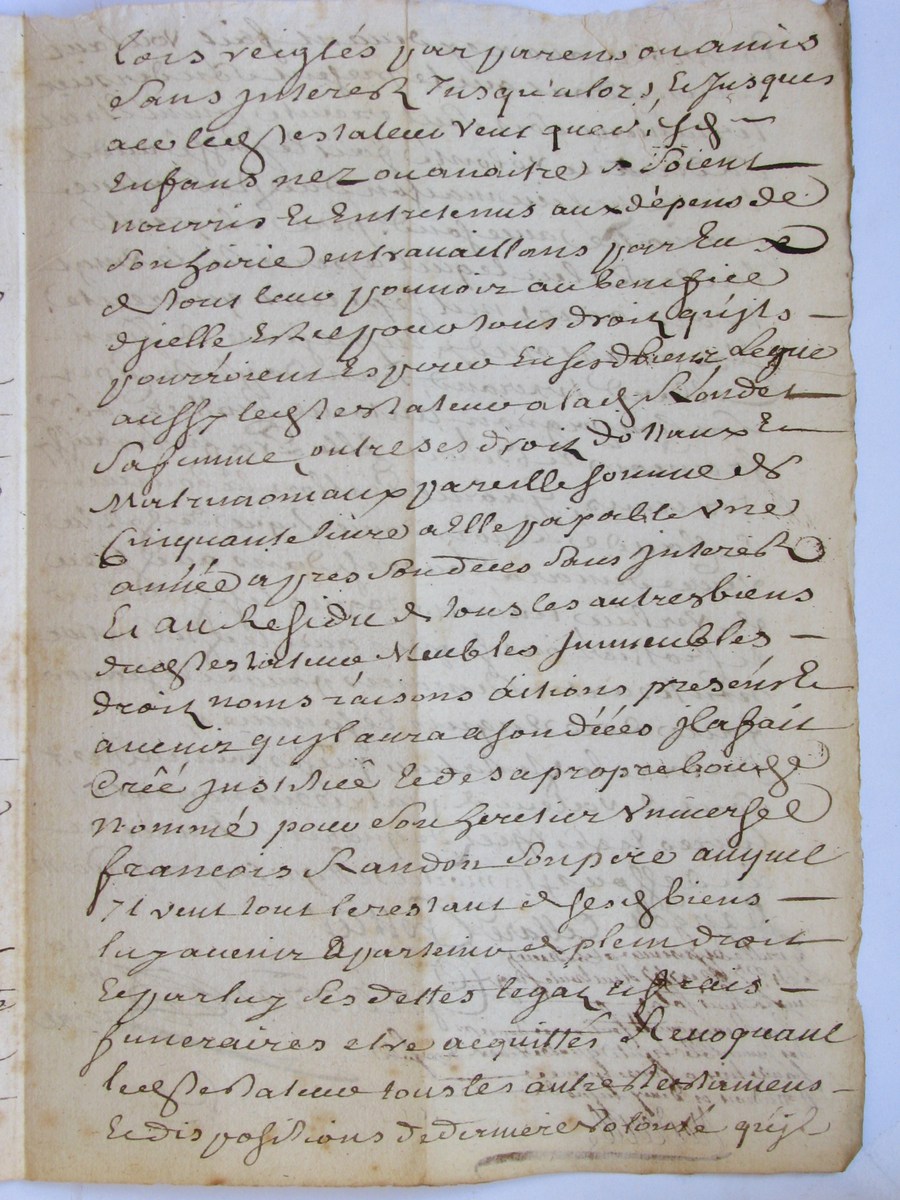 lors reiglés par parens ou amis
sans jnterest Jusqu'alors, Et Jusques
a ce ledt testateur veut que
Enfans nez ou a naitre soient
nourris Et Entretenus aux dépens de
son hoirie en travaillans par Eux
de tout leur pouvoir au benefice
d'jcelle Et ce pour tous droit qu'jls
pourroient Esperer En sesd biens Legue
aussy ledt testateur a lad Randon
sa femme outre ses droit dottaux Et
Matrimoniaux pareille somme de
Cinquante livre a Elle payable Une
année apres son deces sans jnterest
Et au Residu de tous les autres biens
dudt testateur Meubles jmmeubles
droit noms raisons ations presens Et
avenir qu'jl aura a son déces jl a fait
Créé jnstitüé Et de sa propre bouche
nommé pour son heretier Universel
francois Randon son pere auquel
Jl veut tout le restant de sesd biens
luy avenir Apartenir de plein droit
Et par luy ses dettes legaz Et frais
funeraires etre acquittés Revoquant
ledt testateur tous les autres testamens
Et dispositions de derniere Volonté qu'jl